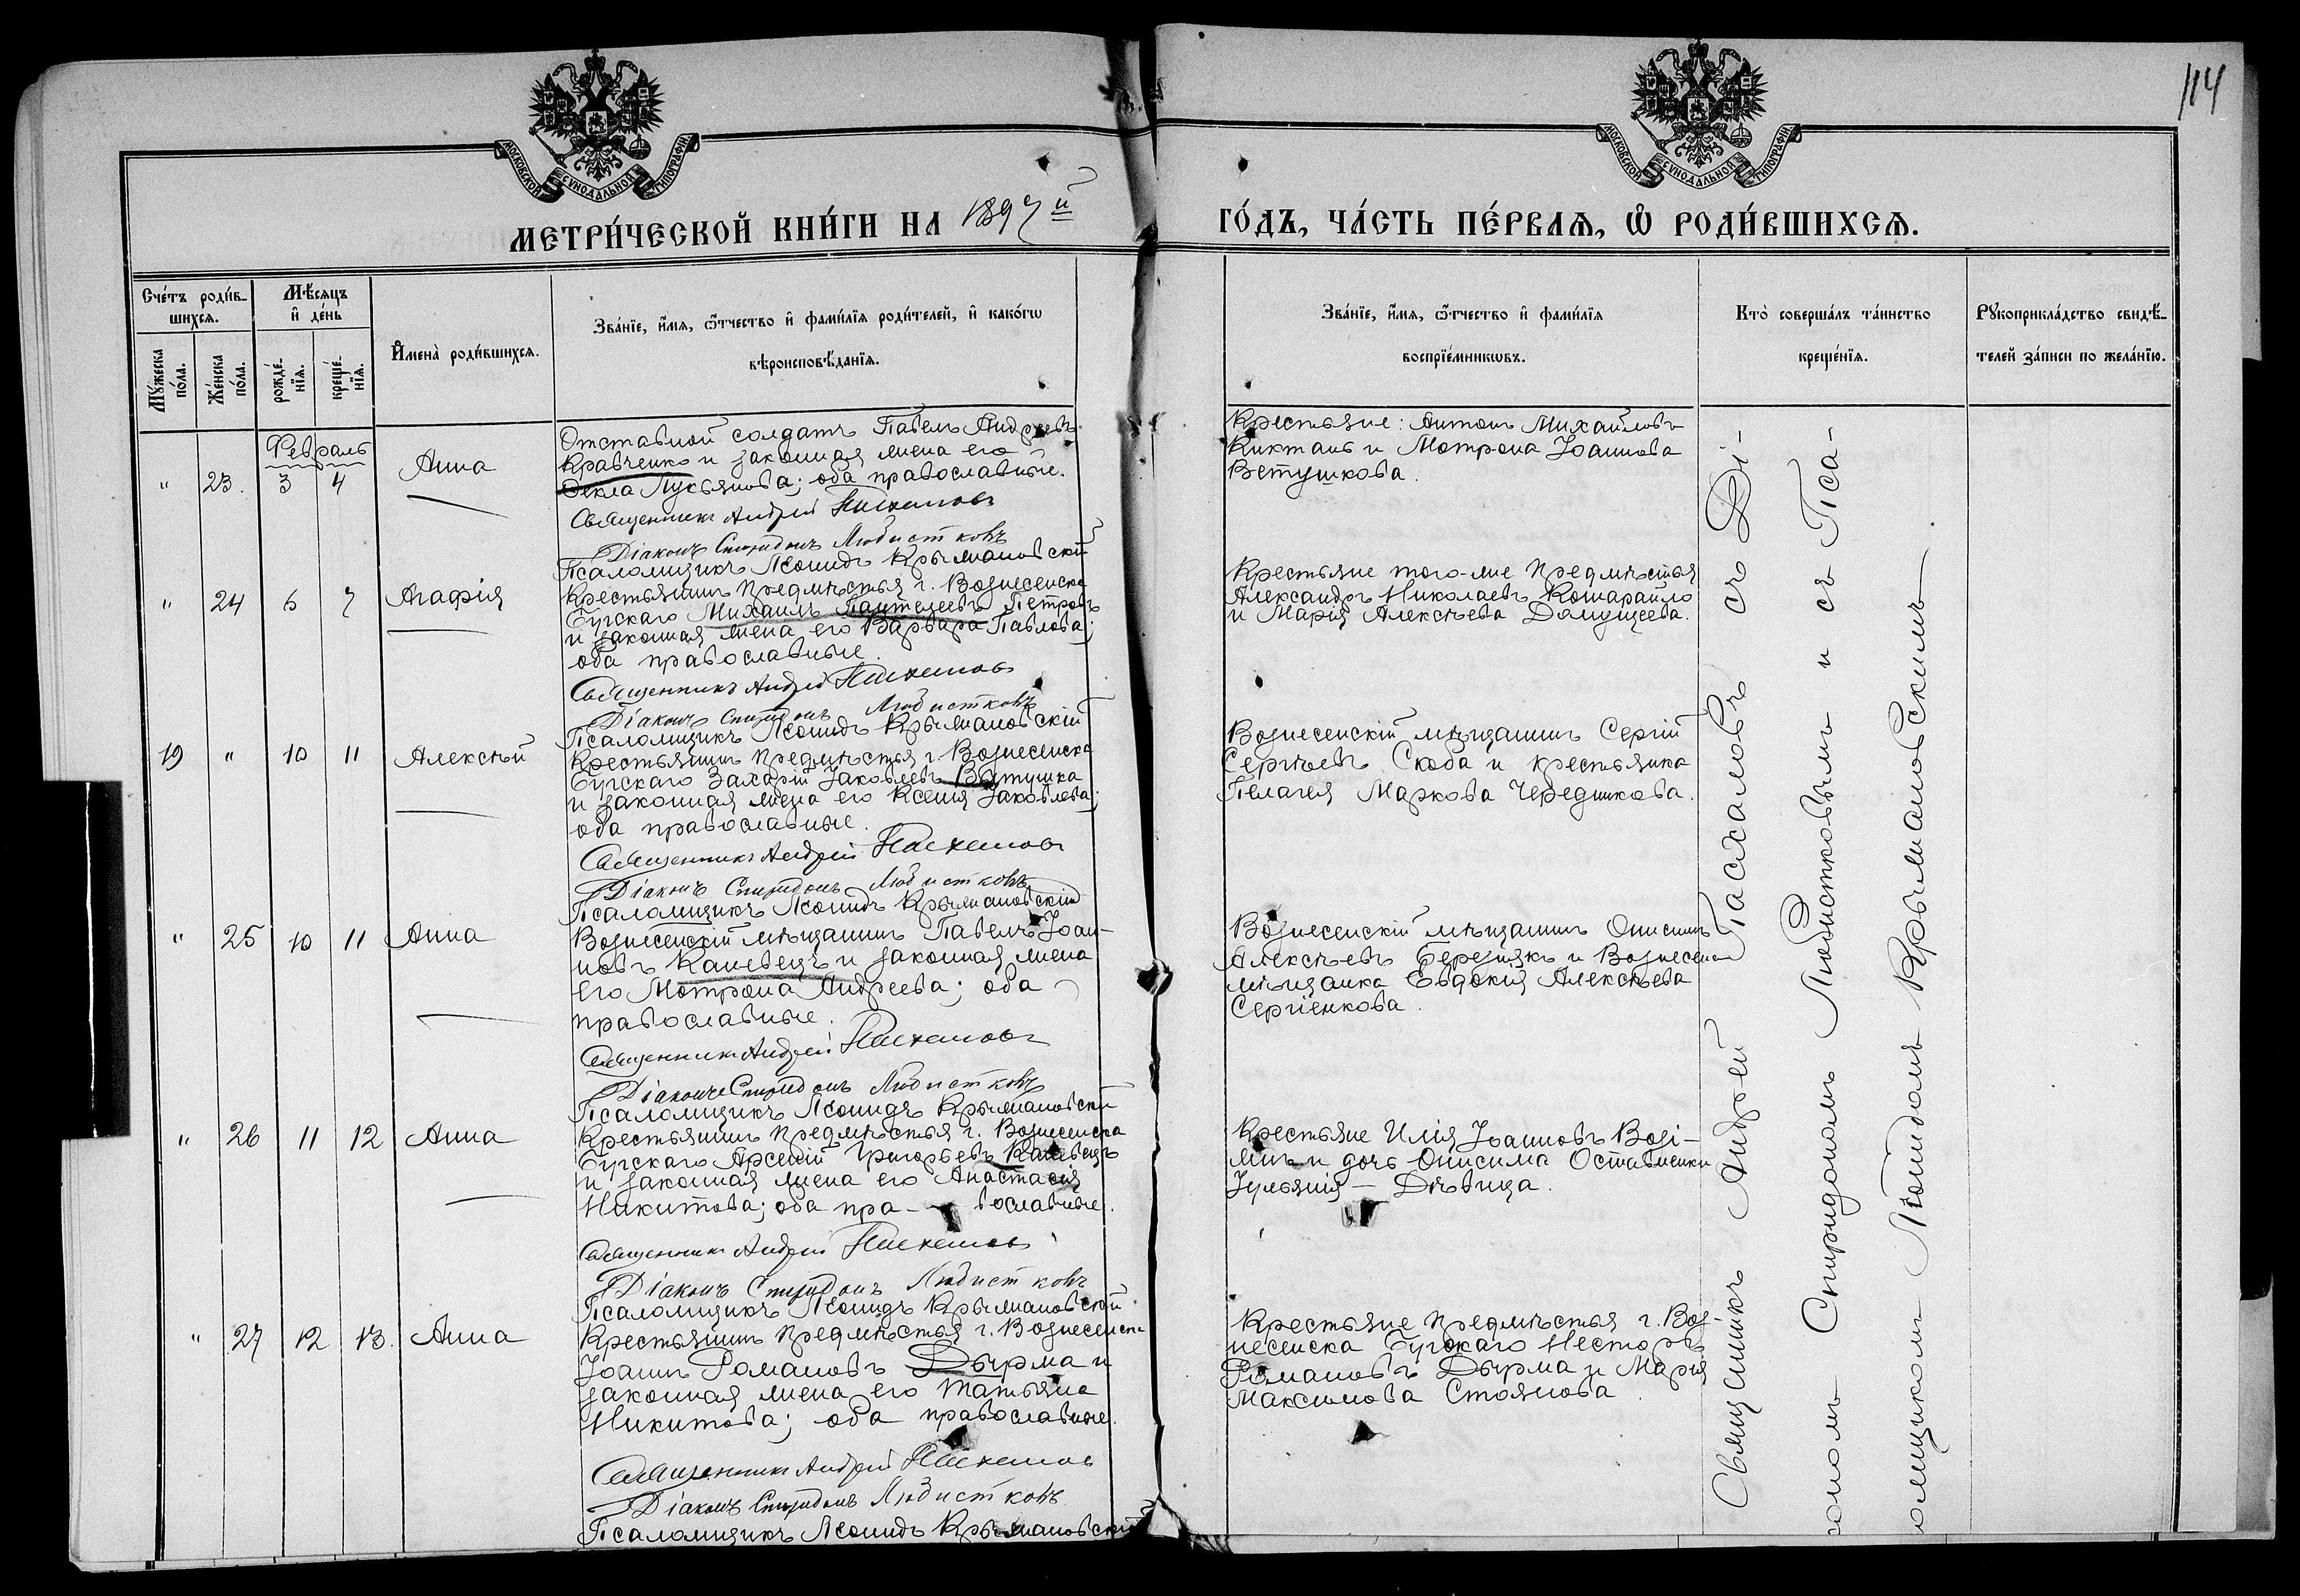 114
МОСКОВСКОЙ СѴНОДАЛЬНОЙ ТИПОГРАФІИ
МОСКОВСКОЙ СѴНОДАЛЬНОЙ ТИПОГРАФІИ
МЕТРИ́ЧЕСКОЙ КНИ́ГИ НА 1897й ГО́ДЪ, ЧА́СТЬ ПЕ́РВАѦ, Ѽ РОДИ́ВШИХСѦ.
Сче́тъ роди́в-
шихсѧ.
Мѣ́сяцъ
и҆ де́нь
Мꙋ́жеска
по́ла.
Же́нска
по́ла.
рожде́-
нїѧ.
креще́-
нїѧ.
И҆мена̀ роди́вшихсѧ.
Зва́нїе, и҆́мѧ, ѻ҆́тчество и҆ фами́лїѧ роди́телей, и҆ како́гѡ
вѣроисповѣ́данїѧ.
Зва́нїе, и҆́мѧ, ѻ҆́тчество и҆ фами́лїѧ
воспрїе́мникѡвъ.
Кто̀ соверша́лъ та́инство
креще́нїѧ.
Рꙋкоприкла́дство свидѣ́-
телей за́писи по жела́нїю.
Февраль
" 23. 3 4 Анна
Отставной солдатъ Павелъ Андреевъ
Кравченко и законная жена его
Ѳекла Лукьянова; оба православные.
Священникъ Андрей Пасхаловъ
Діаконъ Спиридонъ Любистковъ
Псаломщикъ Леонидъ Крыжановскій
Крестьяне: Антонъ Михайловъ
Киктань и Мотрона Іоаннова
Ветушкова.
" 24 6 7 Агафія
Крестьянинъ предмѣстья г. Вознесенска
Бугскаго Михаилъ Пантелеевъ Петровъ
и законная жена его Варвара Павлова;
оба православные.
Священникъ Андрей Пасхаловъ
Діаконъ Спиридонъ Любистковъ
Псаломщикъ Леонидъ Крыжановскій
Крестьяне того-же предмѣстья
Александръ Николаевъ Кошарайло
и Марія Алексѣева
19 " 10 11 Алексѣй
Крестьянинъ предмѣстья г. Вознесенска
Бугскаго Захарій Іаковлевъ Ветушка
и законная жена его Ксенія Іаковлева;
оба православные.
Священникъ Андрей Пасхаловъ
Діаконъ Спиридонъ Любистковъ
Псаломщикъ Леонидъ Крыжановскій
Вознесенскій мѣщанинъ Сергій
Сергѣевъ Скоба и крестьянка
Пелагея Маркова Чередникова.
" 25 10 11 Анна
Вознесенскій мѣщанинъ Павелъ Іоан-
новъ Каневецъ и законная жена
его Мотрона Андреева; оба
православные.
Священникъ Андрей Пасхаловъ
Діаконъ Спиридонъ Любистковъ
Псаломщикъ Леонидъ Крыжановскій
Вознесенскій мѣщанинъ Онисимъ
Алексѣевъ Березякъ и Вознесенск
мѣщанка Евдокія Алексѣева
Сергіенкова.
" 26 11 12 Анна
Крестьянинъ предмѣстья г. Вознесенска
Бугскаго Арсеній Григорьевъ Каневецъ
и законная жена его Анастасія
Никитова; оба пра- вославные.
Священникъ Андрей Пасхаловъ
Діаконъ Спиридонъ Любистковъ
Псаломщикъ Леонидъ Крыжановскій
Крестьяне Илія Іоанновъ
и дочь Онисима
Іуліянія — Дѣвица.
" 27 12 13. Анна
Крестьянинъ предмѣстья г. Вознесенска
Іоаннъ Романовъ Дырма и
законная жена его Татьяна
Никитова; оба православные.
Священникъ Андрей Пасхаловъ
Діаконъ Спиридонъ Любистковъ
Псаломщикъ Леонидъ Крыжановскій
Крестьяне предмѣстья г. Воз-
несенска Бугскаго Несторъ
Романовъ Дырма и Марія
Максимова Стоянова.
Священникъ Андрей Пасхаловъ съ Ді-
ономъ Спиридономъ Любистковымъ и съ Пса-
омщикомъ Леонидомъ Крыжановскимъ